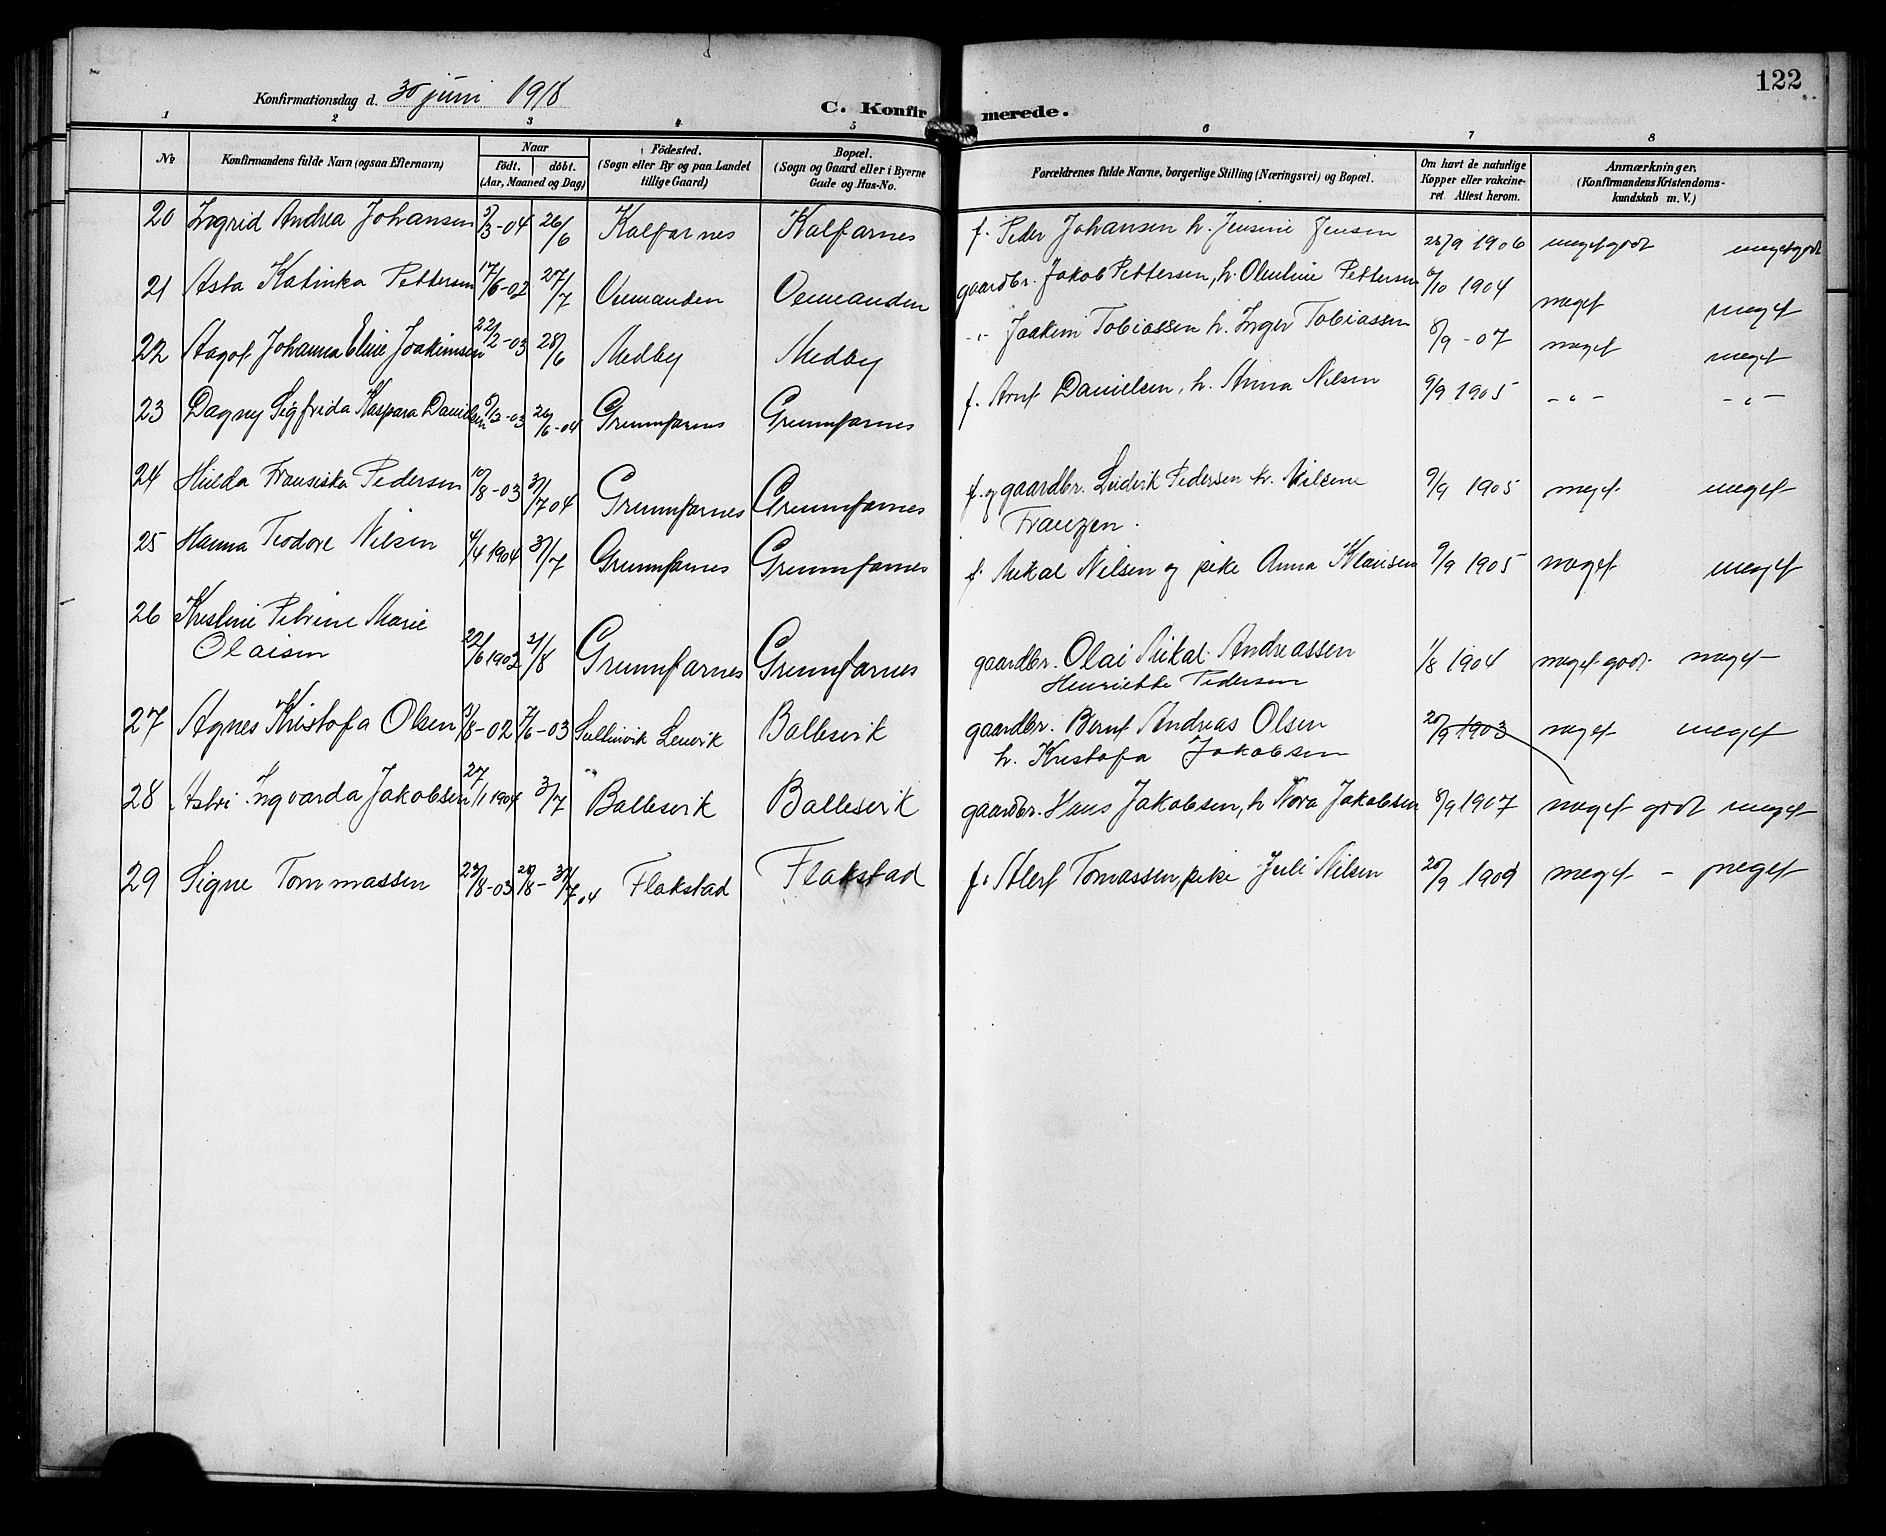 122
Konfirmationsdag d. 30 juni 1918
C. Konfirmerede.
1 2 3 4 5 6 7 8
No
Konfirmandens fulde Navn (ogsaa Efternavn)
Naar
födt. döbt.
(Aar, Maaned og Dag)
Födested.
(Sogn eller By og paa Landet
tillige Gaard)
Bopæl.
(Sogn og Gaard eller i Byerne
Gade og Hus-No.
Forældrenes fulde Navne, borgerlige Stilling (Næringsvei) og Bopæl.
Om havt de naturlige
Kopper eller vakcine-
ret Attest herom.
Anmærkninger,
(Konfirmandens Kristendoms-
kundskab m. V.)
20 Ingrid Andrea Johansen /3-04 26/6 Kalfarnes Kalfarnes f. Peder Johansen h. Jensine Jensen 28/9 1906 meget godt meget godt
21 Asta Katinka Pettersen 17/6-02 27/7 gaardbr. Jakob Pettersen, h. Olentine Pettersen /10 1904 meget meget
22 Aagot Johanna Eline Joakimsen 22/2-03 28/6 Medby Medby -"- Joakim Tobiassen h. Inger Tobiassen 8/9 -07 meget meget
23 Dagny Sigfrida Kaspara Danielsen /12-03 26/6-04 Grunnfarnes Grunnfarnes f. Arnt Danielsen, h. Anna Nilsen 9/9 1905 -"- -"-
24 Hilda Fransiska Pedersen 10/8-03 31/7 04 Grunnfarnes Grunnfarnes f. og gaardbr. Ludvik Pedersen h. Nilsine 9/9 1905 meget meget
Franzen.
25 Hanna Teodore Nilsen /4 1904 31/7 Grunnfarnes Grunnfarnes f. Mikal Nilsen og pike Anna Klausen 9/9 1905 meget meget
26 Kristine Petrine Marie
Olaisen 22/6 1902 3/8 Grunnfarnes Grunnfarnes gaardbr. Olai Mikal Andreassen 1/8 1904 meget godt meget
Henriette Pedersen
27 Agnes Kristofa Olsen 31/8-02 7/6-03 Lenvik Ballesvik gaardbr. Bernt Andreas Olsen 20/9 1903 meget meget
h. Kristofa Jakobsen
28 Astri Ingvarda Jakobsen 27/1 1904 3/7 " Ballesvik Ballesvik gaardbr. Hans Jakobsen, h Nora Jakobsen 8/9 1907 meget godt meget
29 Signe Tommassen 23/8-03 28/8- 31/7 04 Flakstad Flakstad f. Alert Tomassen, pike Juli Nilsen 20/9 1909 meget - meget